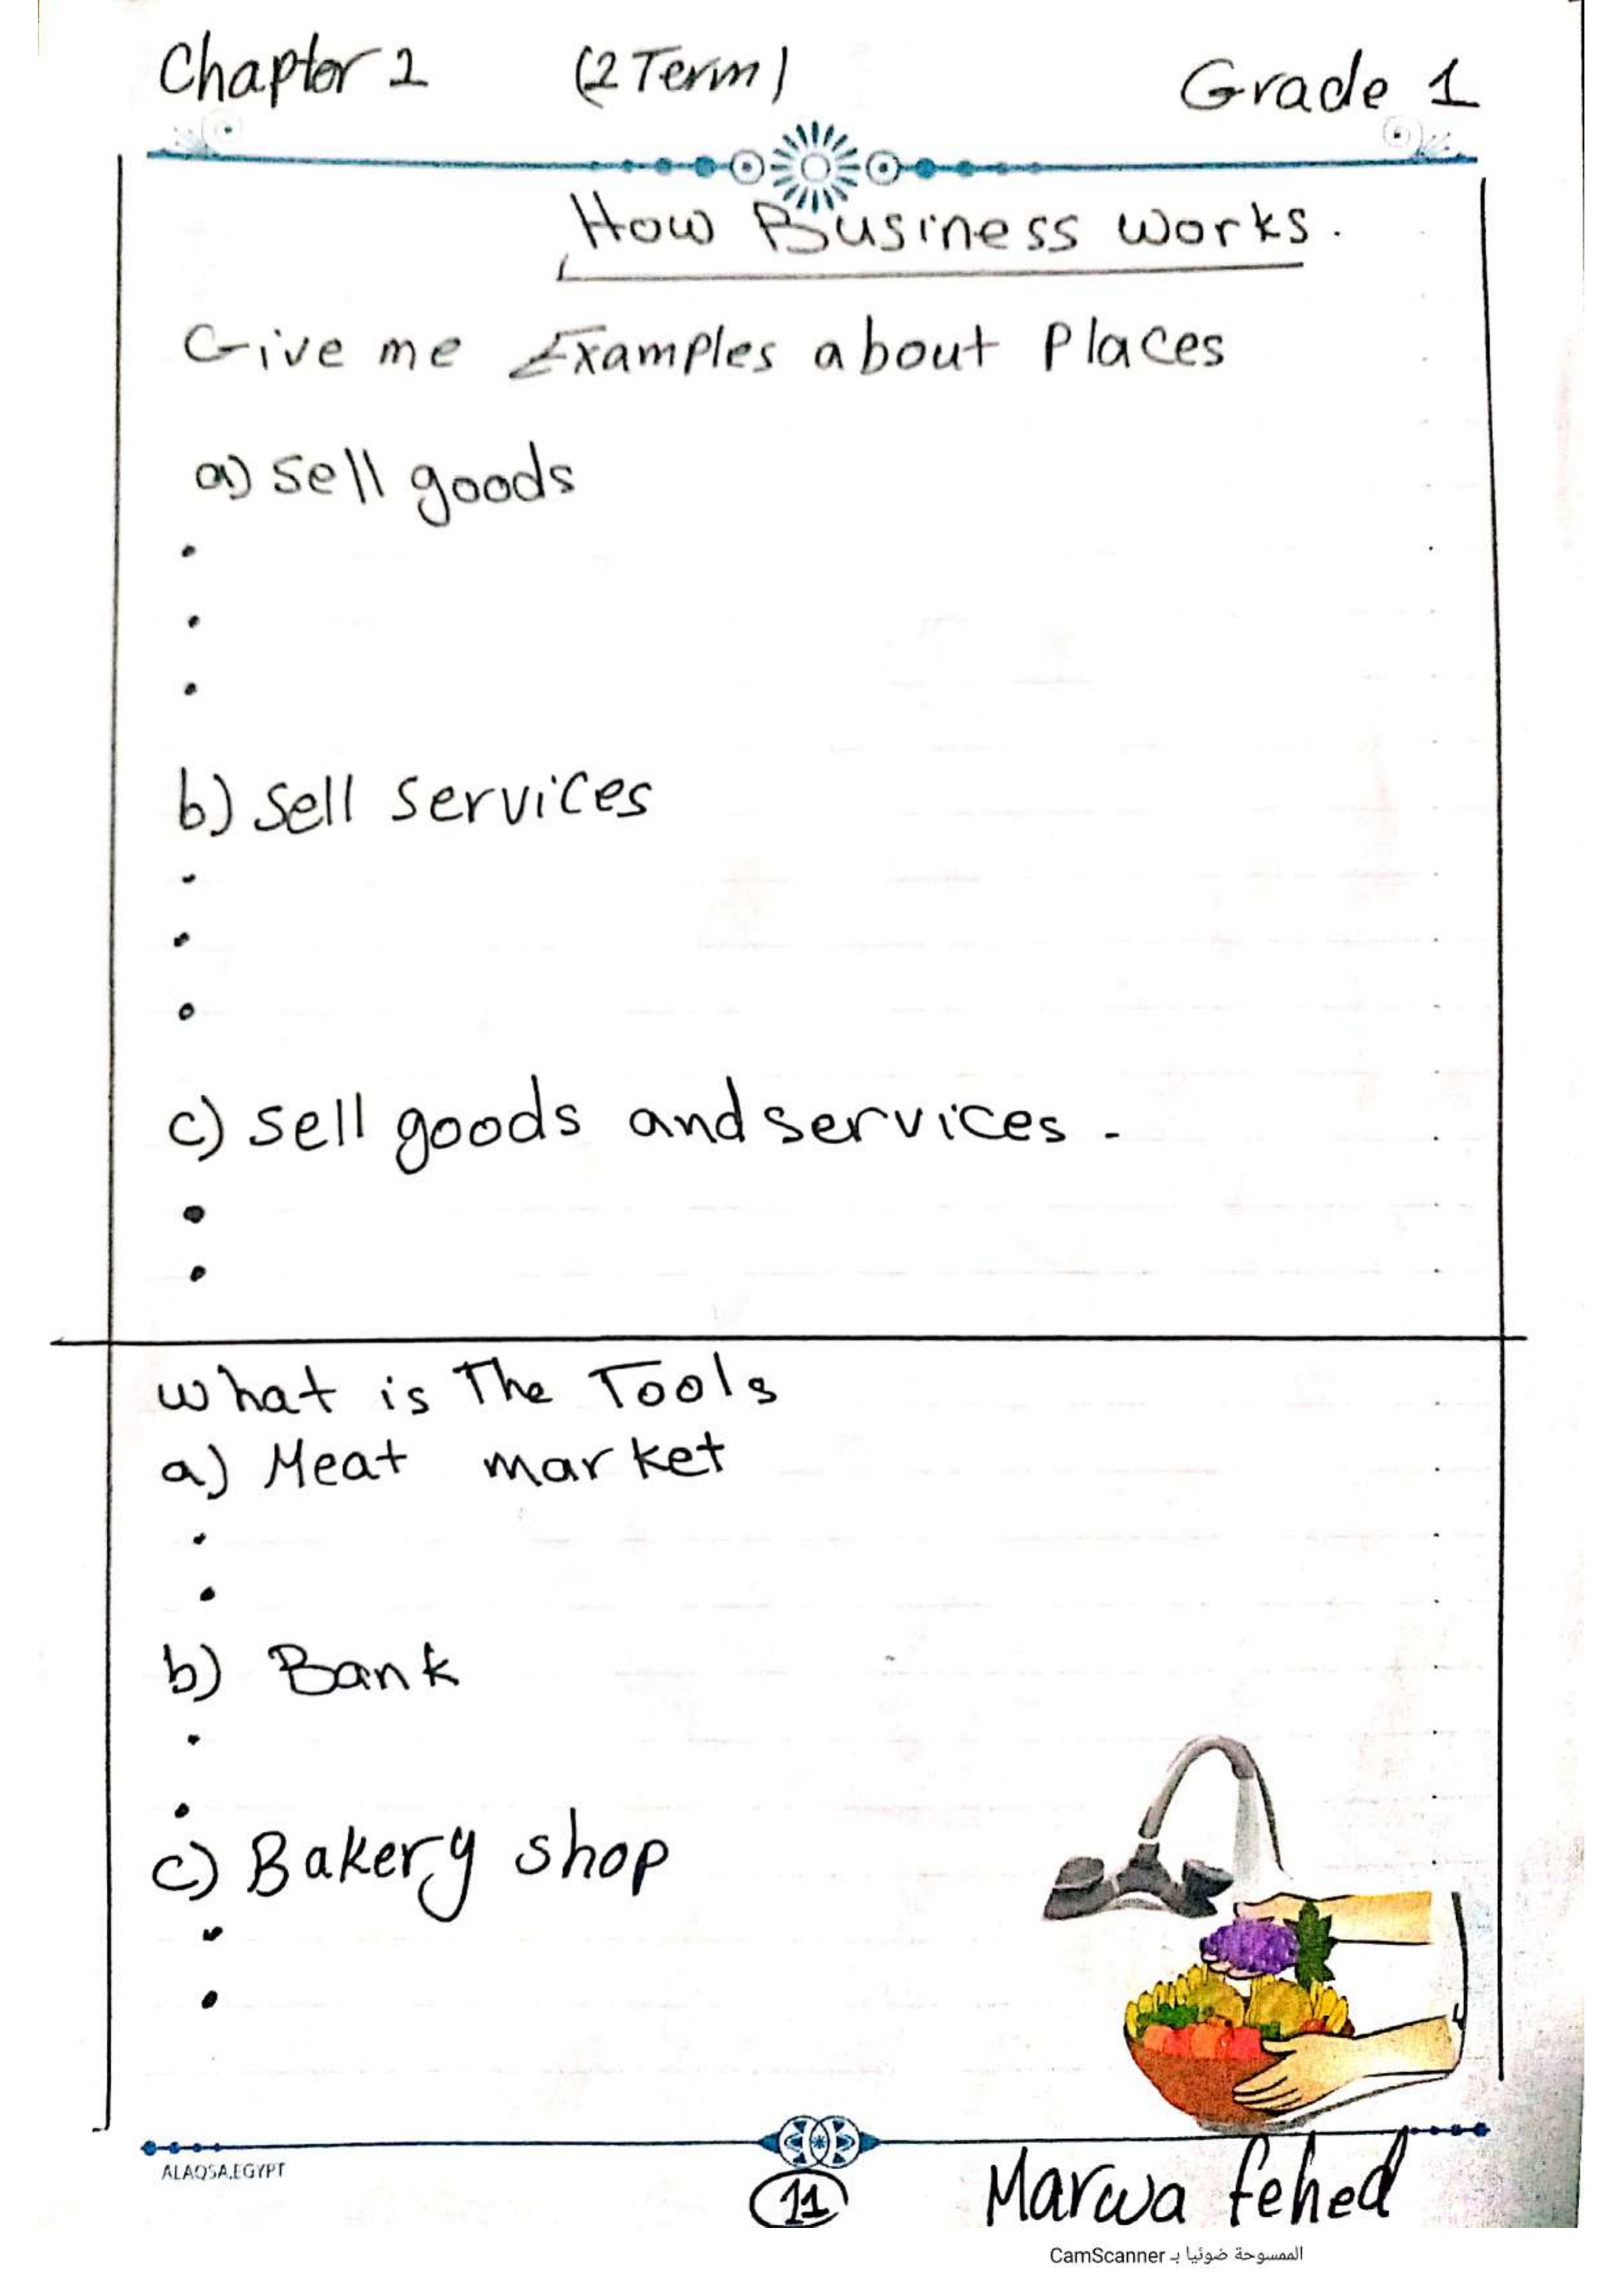 Chapter 2 (2 Term) Grade 1
How Business works.
Give me Examples about Places
a) sell goods
b) sell services
c) sell goods and services.
what is The Tools
a) Meat market
b) Bank
c) Bakery shop
ALAQSA.EGYPT
11 Marwa fehed
الممسوحة ضوئيا بـ CamScanner